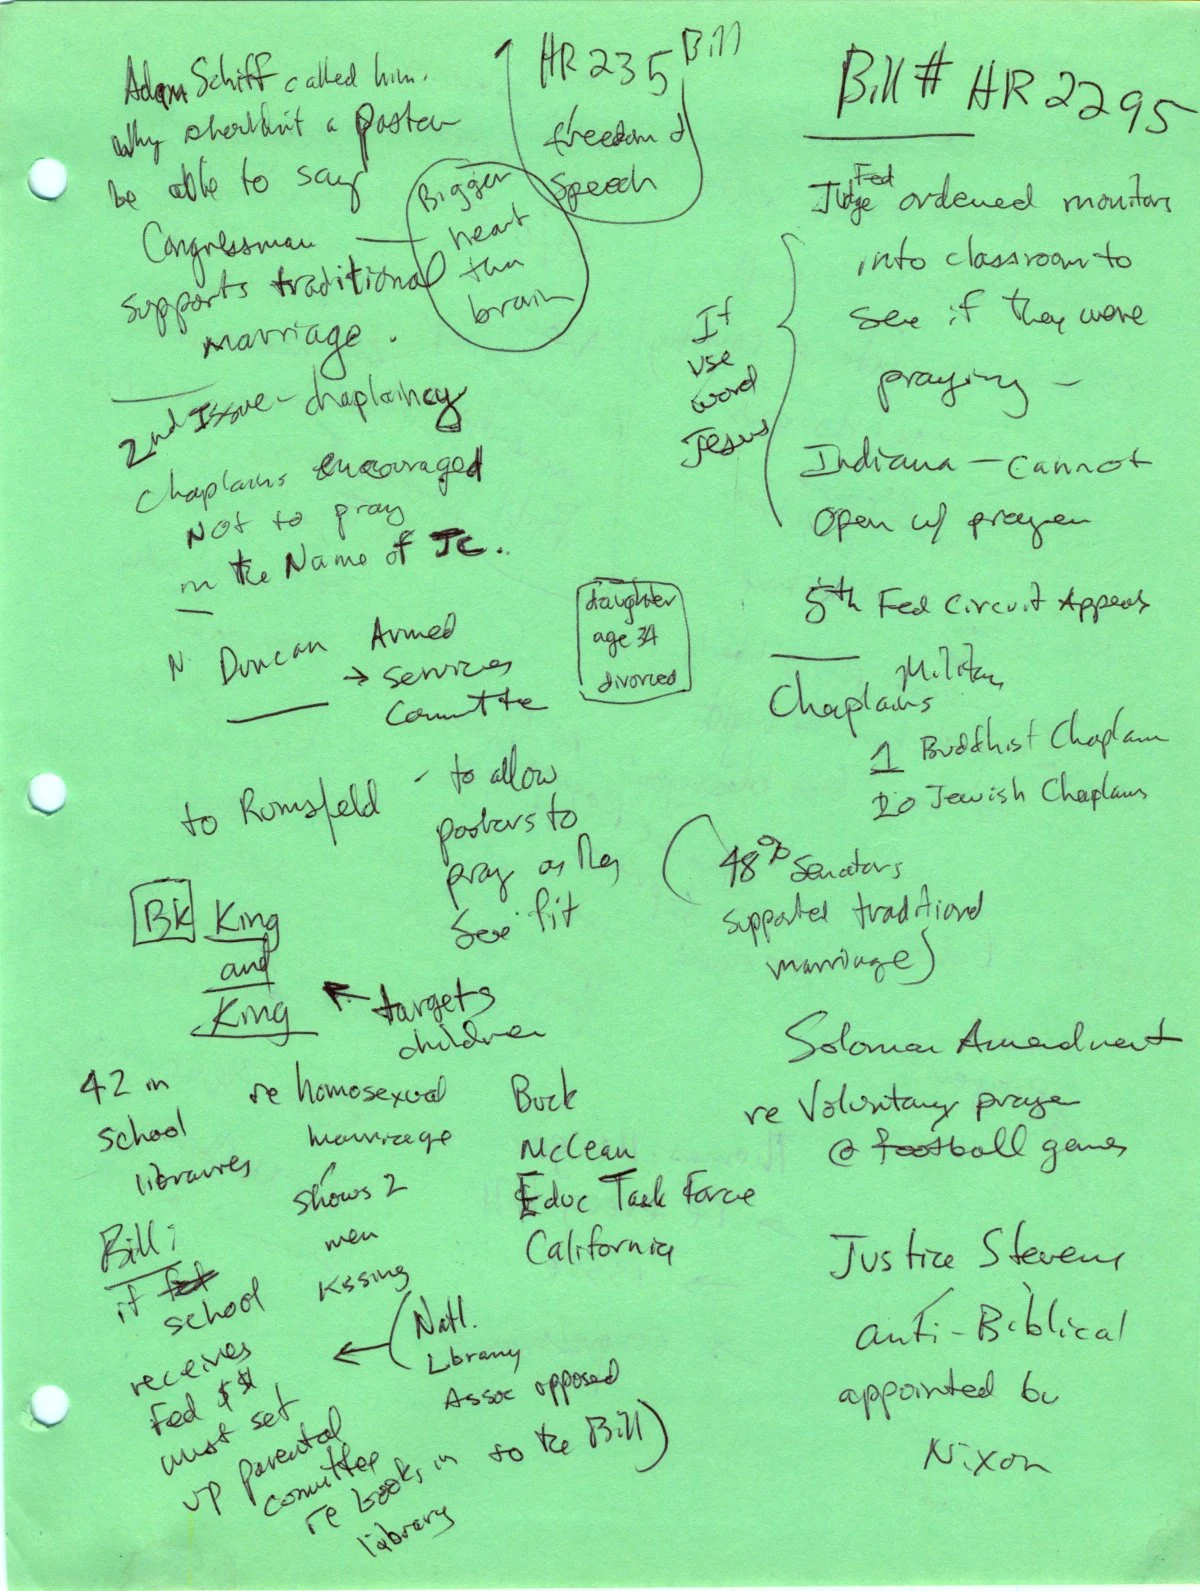 Adam Schiff called him.
Why shouldn't a pastor
be able to say
Congressman
supports traditional
marriage.
Bigger
heart
than
brain
HR 235 Bill
freedom of
Speech
2nd Issue - chaplaincy
Chaplains encouraged
Not to pray
in the Name of JC.
N. Duncan Armed
→ Services
Committe
daughter
age 34
divorced
to Romsfeld - to allow
pastors to
pray as they
see fit
BK King
and
King
← targets
children
42 in
school
libraries
re homosexual
marriage
shows 2
men
kissing
Buck
McLean
Educ Task Force
California
Bill:
if
school
receives
Fed $$
must set
up parental
committee
re books in
library
← (Natl.
Library
Assoc opposed
to the Bill)
Bill # HR 2295
Fed
Judge ordered monitors
into classroom to
see if they were
praying -
If
use
word
Jesus
Indiana - cannot
open w/ prayer
5th Fed Circuit Appeals
Military
Chaplains
1 Buddhist Chaplain
20 Jewish Chaplains
(48% Senators
supported traditional
marriage)
Soloman Amendment
re Voluntary prayer
@ football games
Justice Stevens
anti-Biblical
appointed by
Nixon